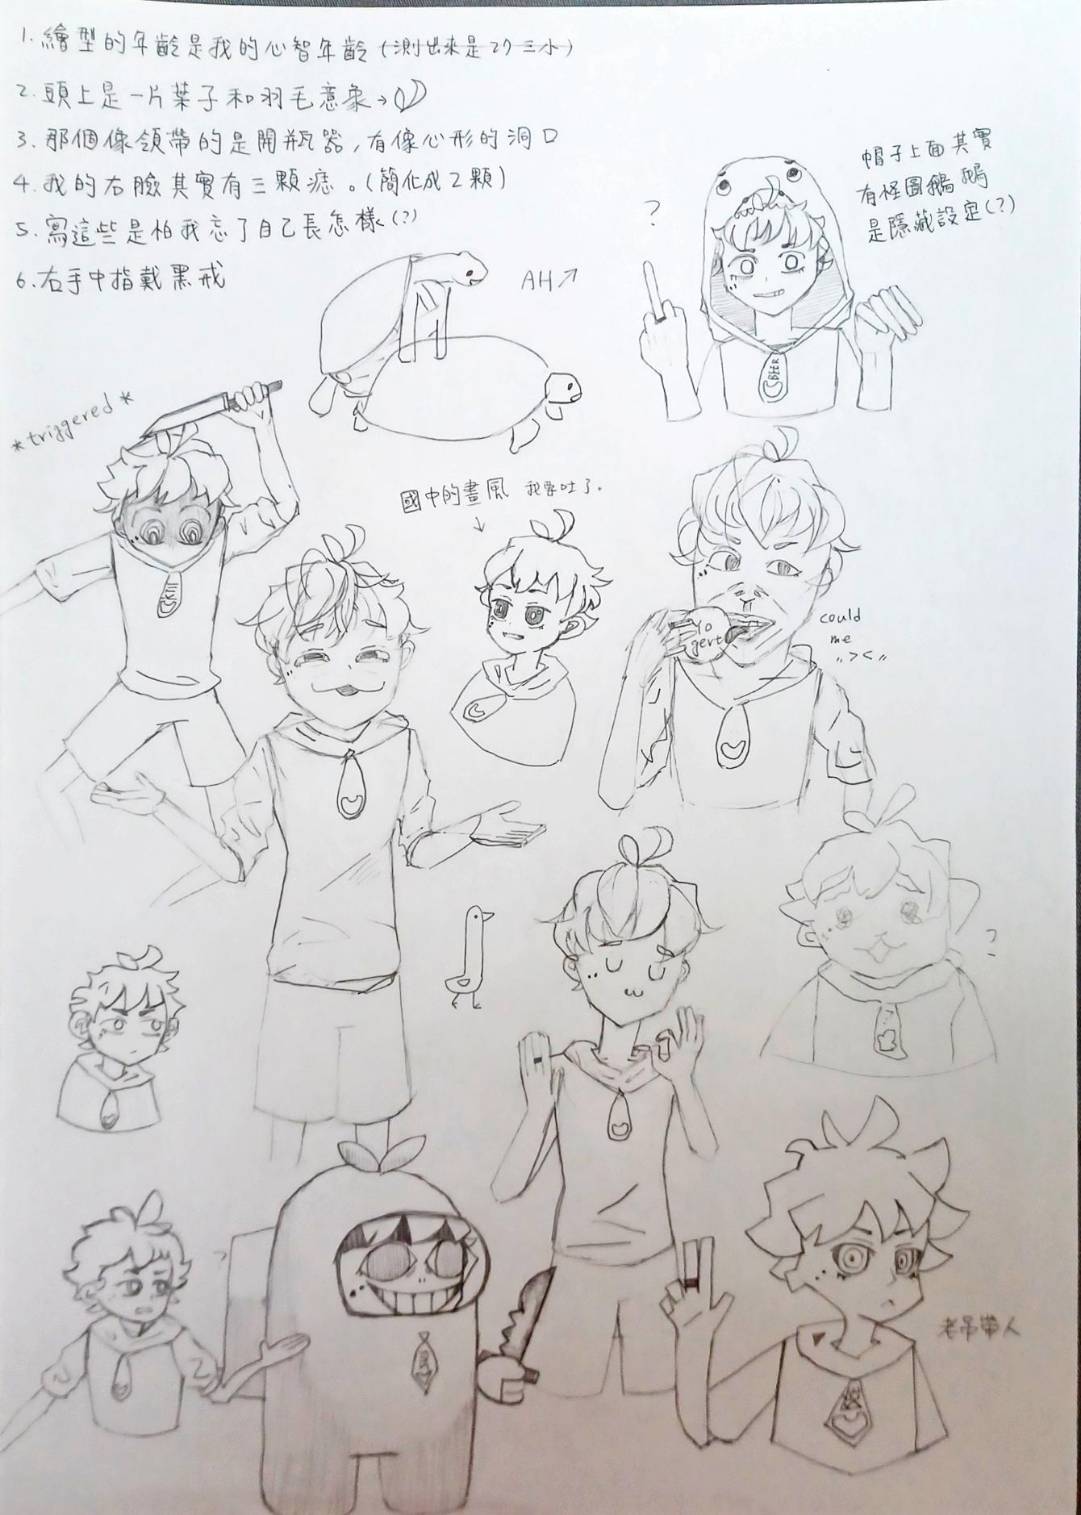 1. 繪型的年齡是我的心智年齡(測出來是27三小)
2. 頭上是一片葉子和羽毛意象→
3. 那個像領帶的是開瓶器,有像心形的洞口
4. 我的右臉其實有三顆痣。(簡化成2顆)
5. 寫這些是怕我忘了自己長怎樣(?)
6. 右手中指戴黑戒
帽子上面其實
有怪圖鵝鵝
是隱藏設定(?)
?
AH↗
BEER
*triggered*
國中的畫風 我要吐了.
↓
Yo
gert
could
me
,,><,,
?
?
老吊帶人